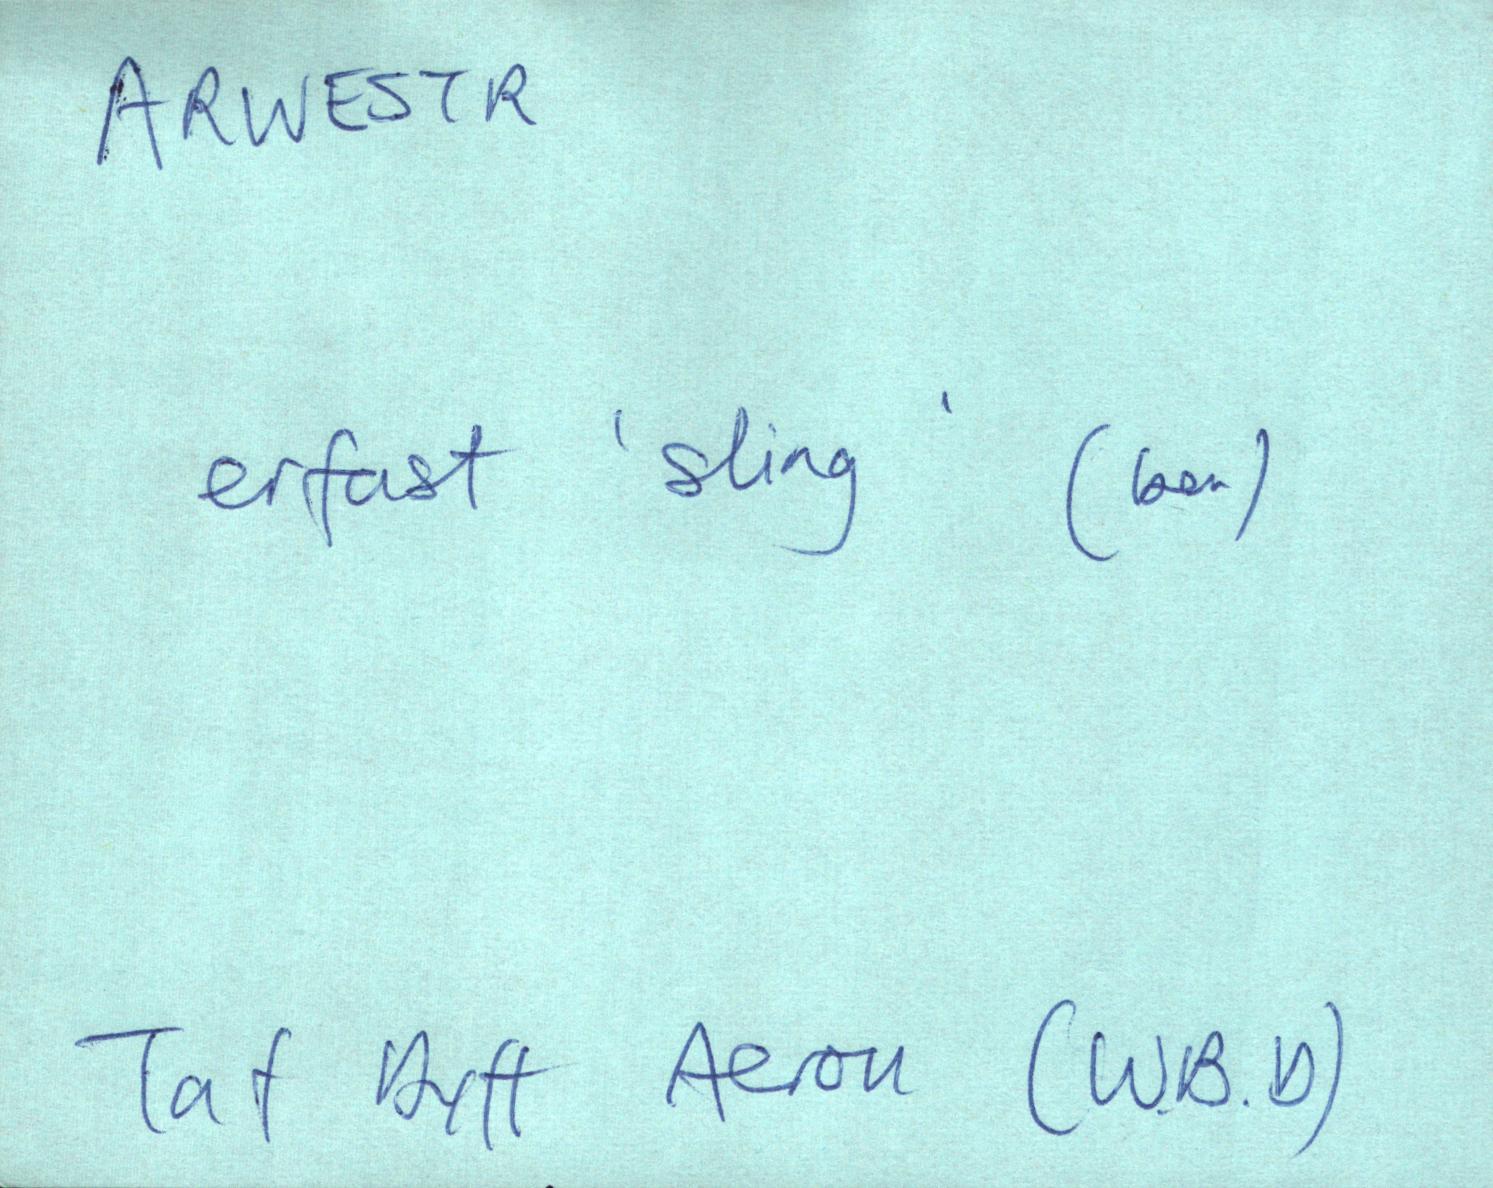 ARWESTR
erfast 'sling' (ben)
Taf Dyff Aeron (W.B.D)